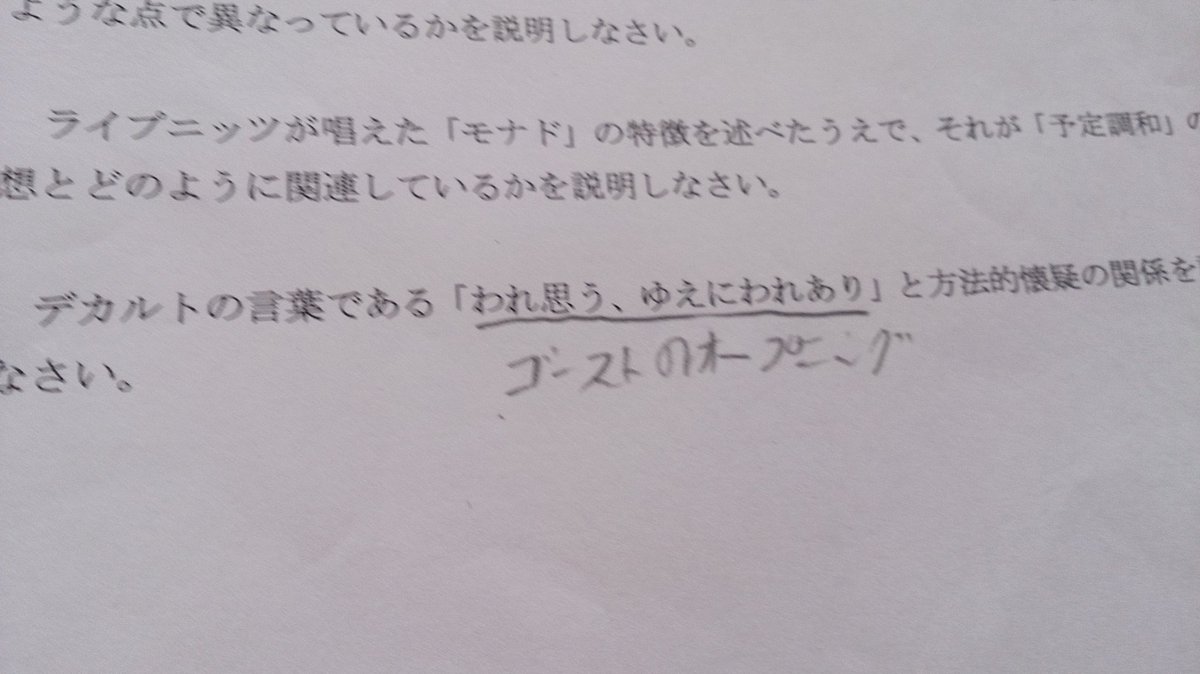 ような点で異なっているかを説明しなさい。
ライプニッツが唱えた「モナド」の特徴を述べたうえで、それが「予定調和」の
想とどのように関連しているかを説明しなさい。
デカルトの言葉である「われ思う、ゆえにわれあり」と方法的懐疑の関係を
なさい。
ゴーストのオープニング